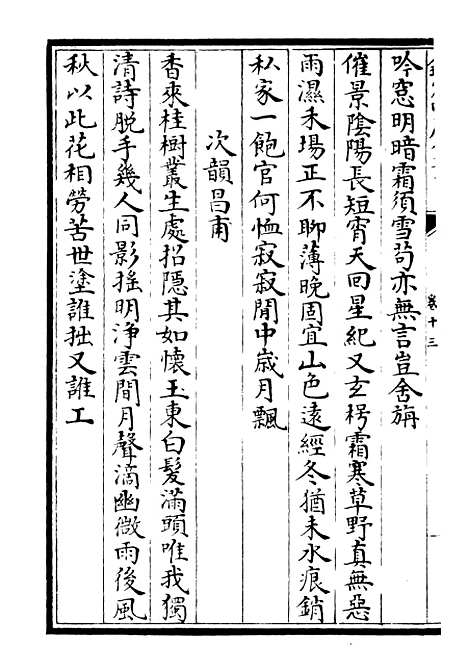 吟窓明暗霜須雪茍亦無言豈舍旃
催景陰陽長短宵天回星紀又玄枵霜寒草野真無惡
雨濕禾場正不聊薄晚固宜山色遠經冬猶未水痕銷
私家一飽官何恤寂寂閒中歲月飄
次韻昌甫
香來桂樹叢生處招隱其如懷玉東白髮滿頭唯我獨
清詩脱手幾人同影揺明淨雲間月聲滴幽微雨後風
秋以此花相勞苦世塗誰拙又誰工
卷十三